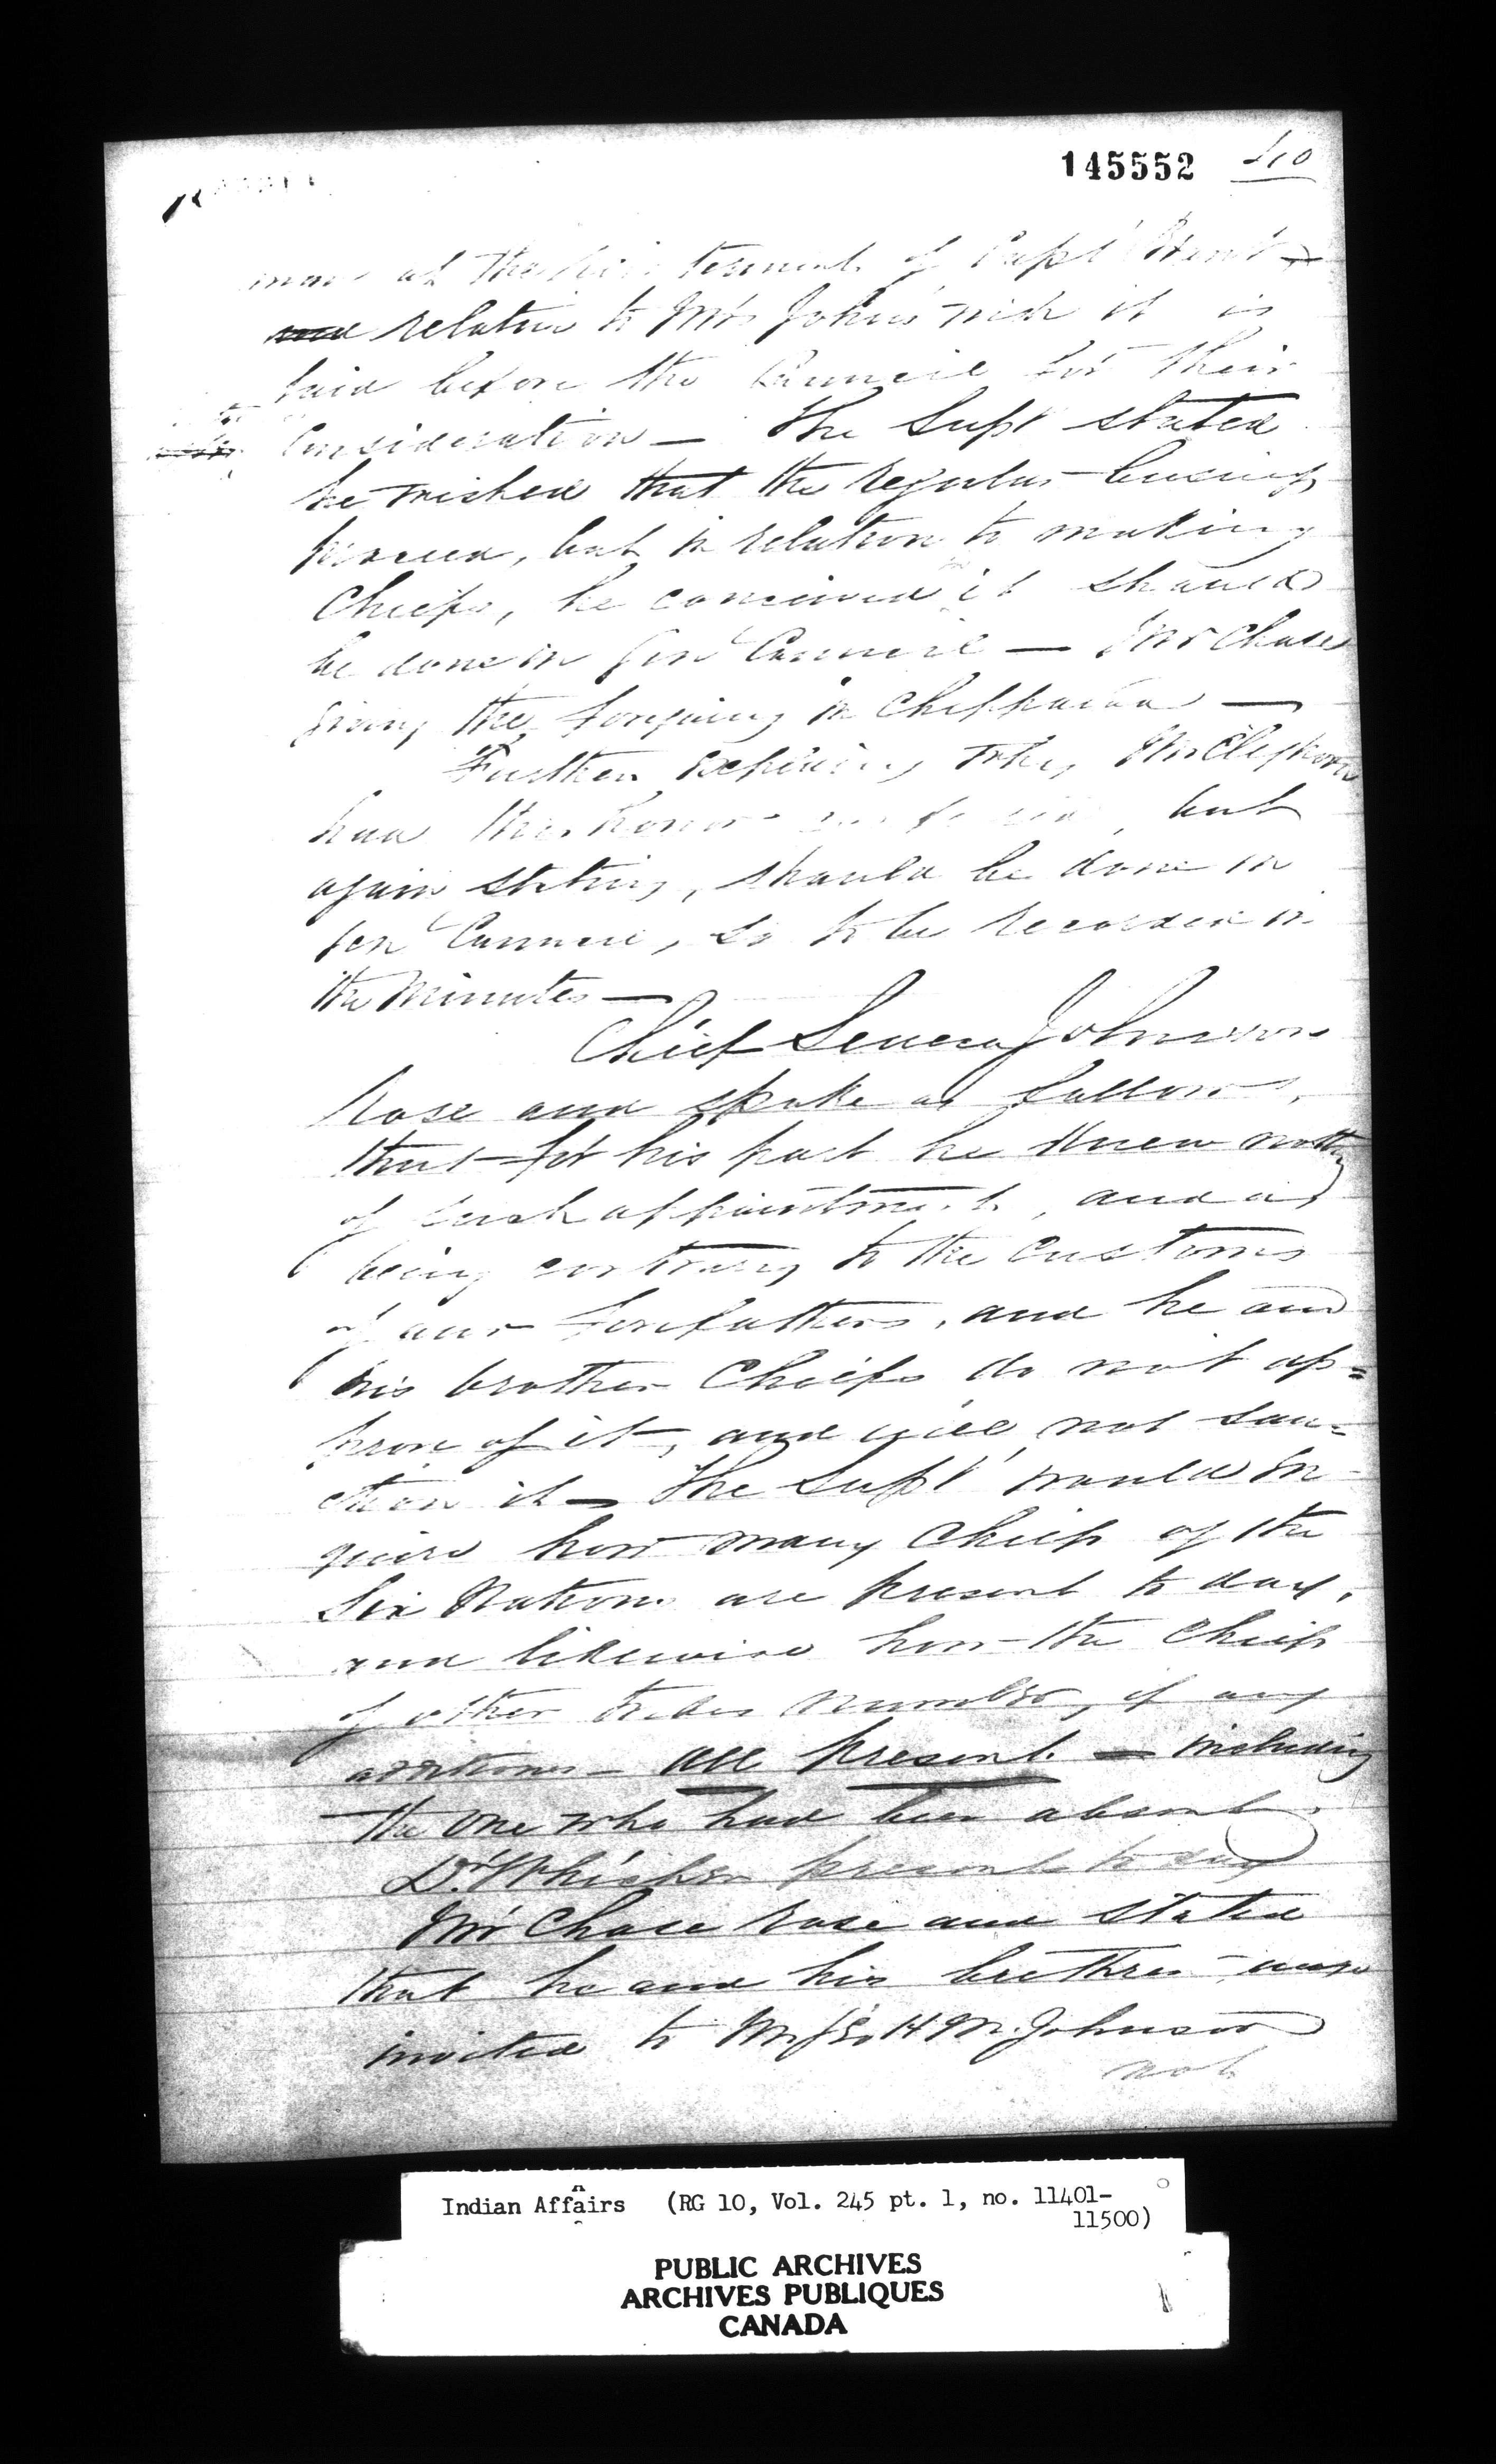 145552 410
at the interment of Capt Brant
relative to Mrs John's wish it is
laid before the Council for their
Consideration — The Supt stated
he wished that the regular business
proceed, but in relation to making
Chiefs, he conceived it should
be done in Gen Council — Mr Chase
giving the foregoing in Chippawa —
Further explaining why Mr Clench
had the honor but
again stating, should be done in
Gen Council, so to be recorded in
the Minutes —
Chief Seneca Johnson
rose and spoke as follows,
that for his part he knew nothing
of such appointment, and as
being contrary to the Customs
of our forefathers, and he and
his brother Chiefs do not ap=
prove of it, and will not sanc=
tion it — The Supt would in-
quire how many Chiefs of the
Six Nations are present to day,
and likewise how the Chiefs
of other tribes number, if any
additions — all present — including
the one who had been absent
Dr Whicher present to day
Mr Chase rose and stated
that he and his brethren were
invited to Mr G. H. M. Johnson
not
Indian Affairs (RG 10, Vol. 245 pt. 1, no. 11401-
11500)
PUBLIC ARCHIVES
ARCHIVES PUBLIQUES
CANADA